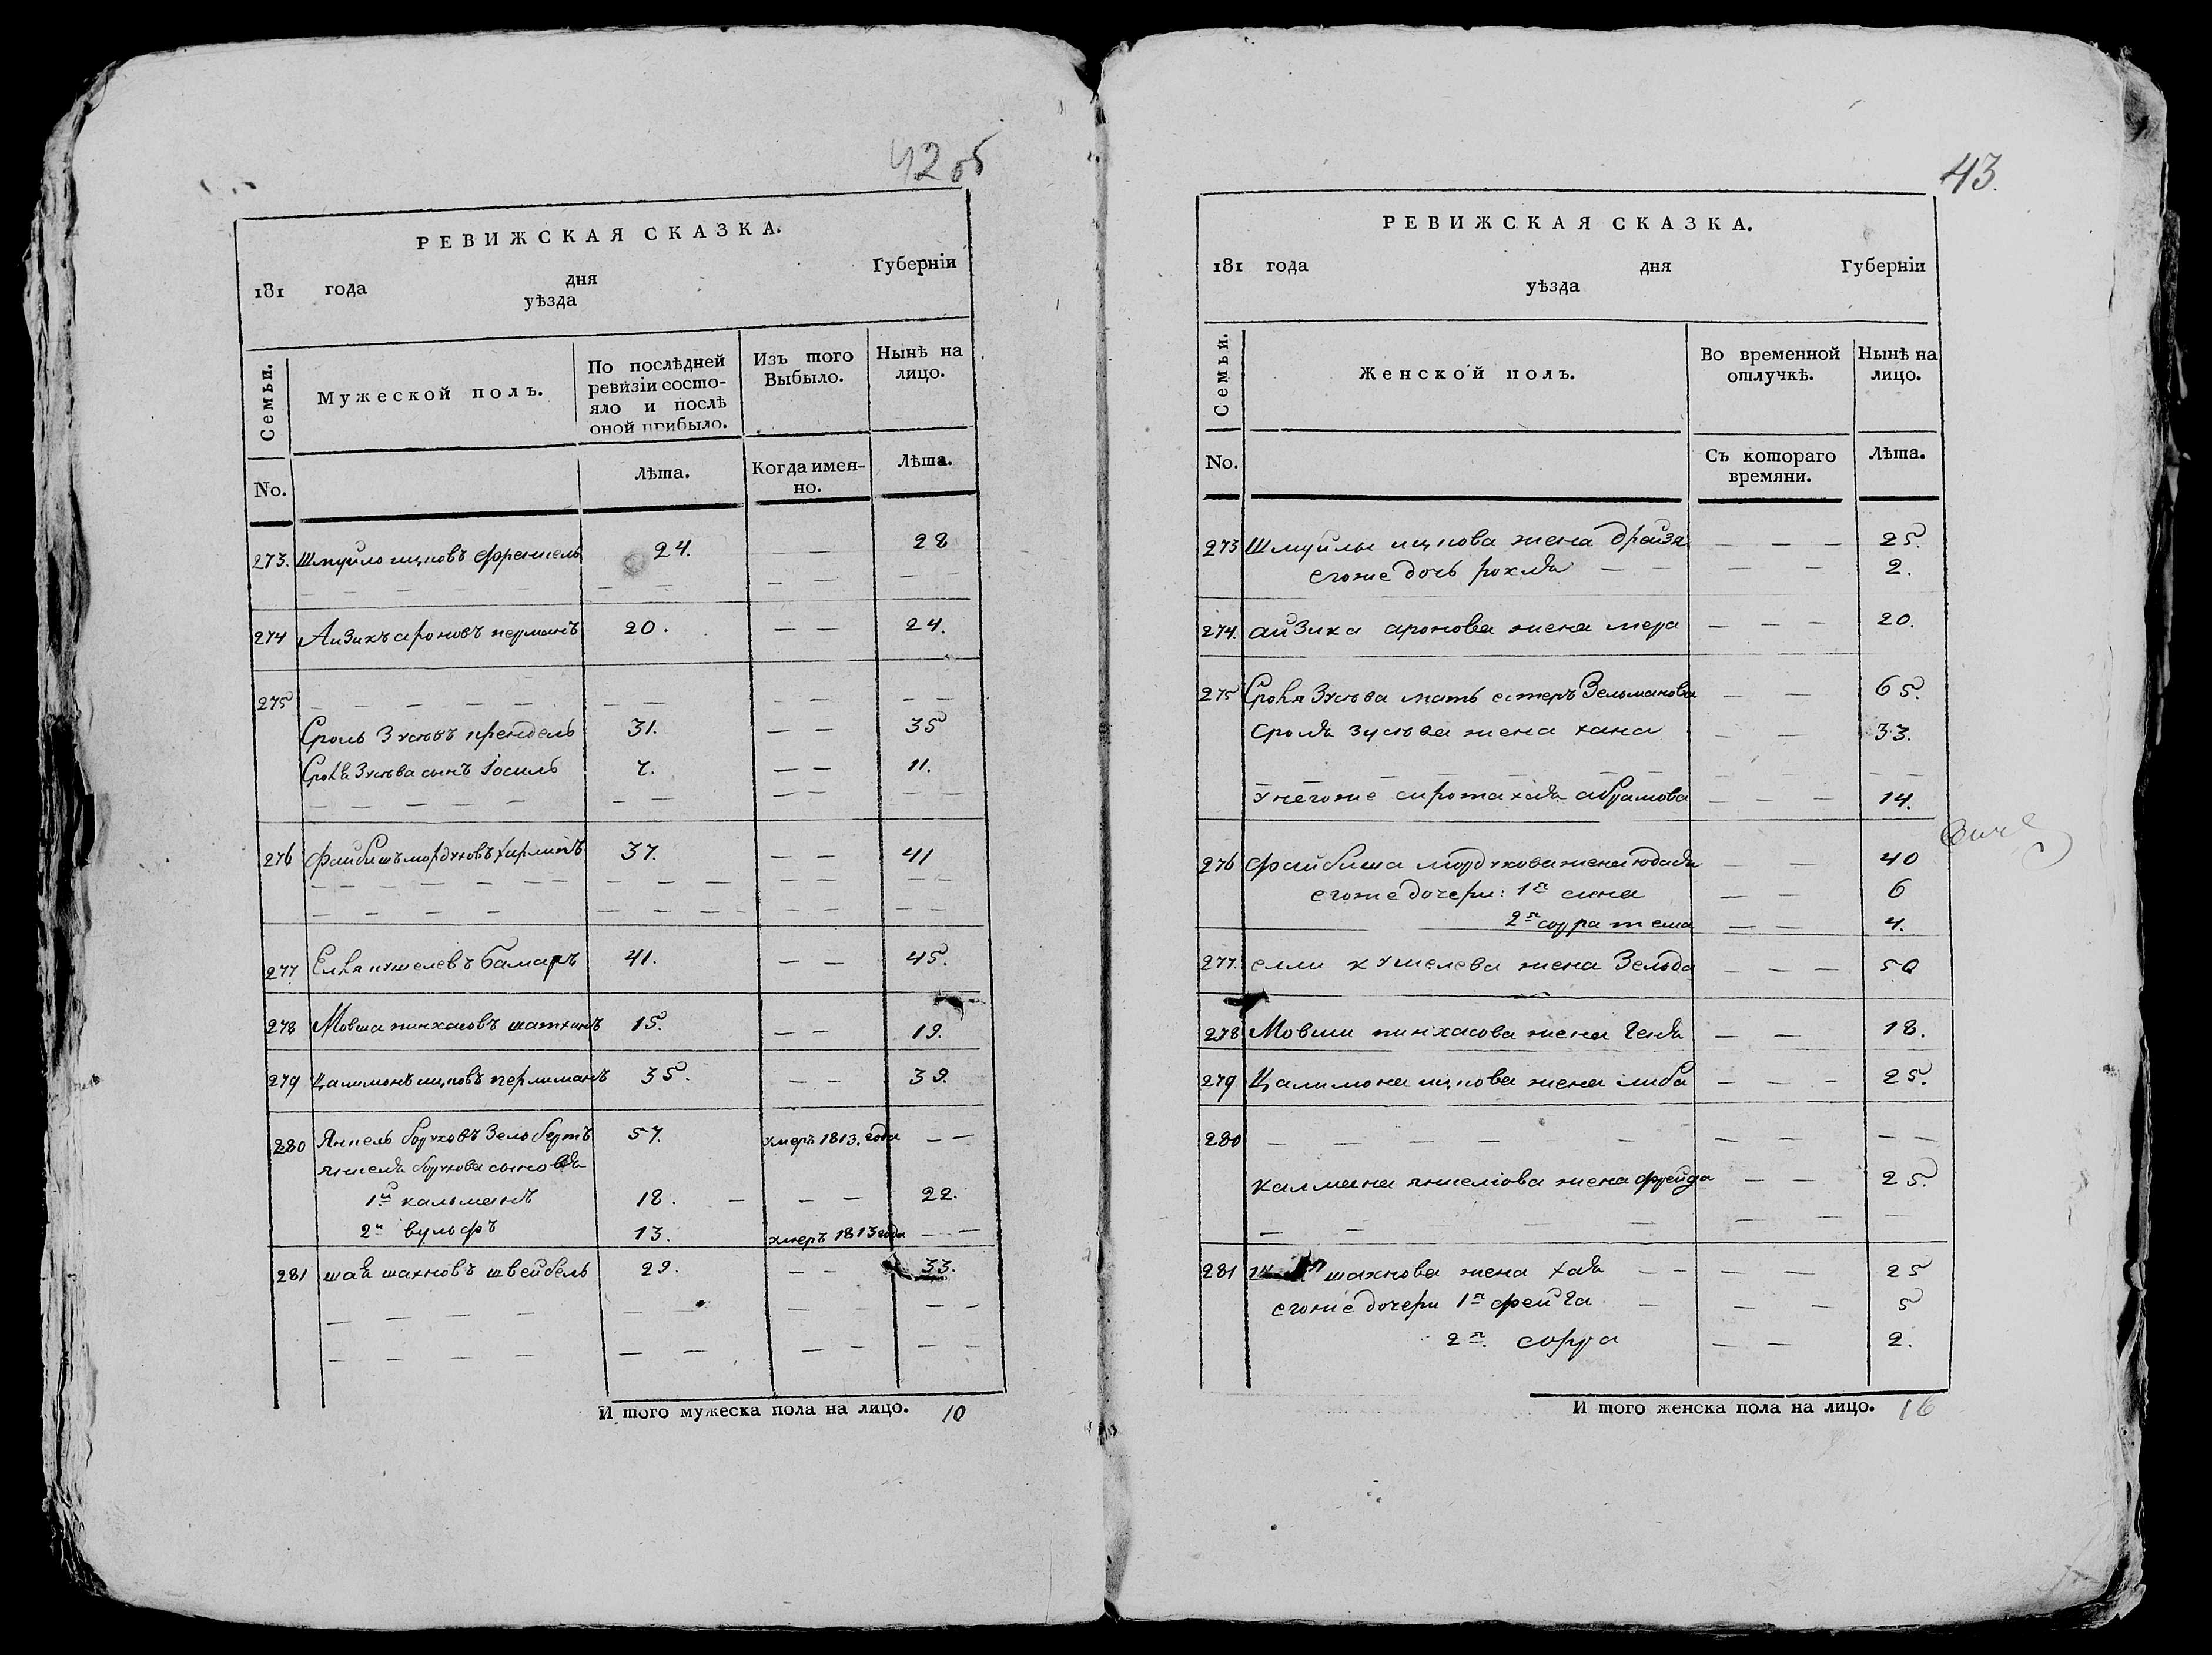 42 об
РЕВИЖСКАЯ СКАЗКА.
181 года дня Губерніи
уѣзда
Семьи. Мужеской полъ. По послѣдней ревизіи состояло и послѣ оной прибыло. Изъ того Выбыло. Нынѣ на лицо.
No. Лѣта. Когда именно. Лѣта.
273. Шмуйло ицковъ френкель 24. — — 28
274 Аизикъ ароновъ перманъ 20. — — 24.
275 — — — — —
Сроль Зуствъ прендель 31. — — 35
сынъ Іосиль 7. — — 11.
276 Файбишъ мордуховъ 37. — — 41
277 41. — — 45.
278 Мовша пинхасовъ 15. — — 19.
279 Цалимонъ ицковъ перлиманъ 35. — — 39.
280 Янкель боруховъ Зельбертъ 57. умеръ 1813. года — —
янкеля борухова сыновья
1й кальманъ 18. — — — 22.
2й вульфъ 13. умеръ 1813 года — —
281 шая шахновъ швейбель 29. — — 33.
И того мужеска пола на лицо. 10
43.
РЕВИЖСКАЯ СКАЗКА.
181 года дня Губерніи
уѣзда
Семьи. Женской полъ. Во временной отлучкѣ. Нынѣ на лицо.
No. Съ котораго времяни. Лѣта.
273 Шмуйлы ицкова жена драйзя — — — 25.
егоже дочь рохля — — — — 2.
274. айзика аронова жена мера — — — 20.
275 мать естеръ Зельманова — — 65.
сроля жена хана — — 33.
у негоже сирота хая абрамова — — — 14.
276 файбиша мордухова жена юдася — — 40
егоже дочери: 1я сима — — 6
2я — — 4.
277. елли кушелева жена Зельда — — — 50
278 Мовши пинхасова жена геня — — 18.
279 Цалимона ицкова жена либа — — — 25.
280 — — — — — — — —
калмана янкелюва жена фрейда — — 25.
281 шахнова жена хая — — — — 25
егоже дочери 1я фейга — — — 5
2я. сорра — — 2.
И того женска пола на лицо. 16